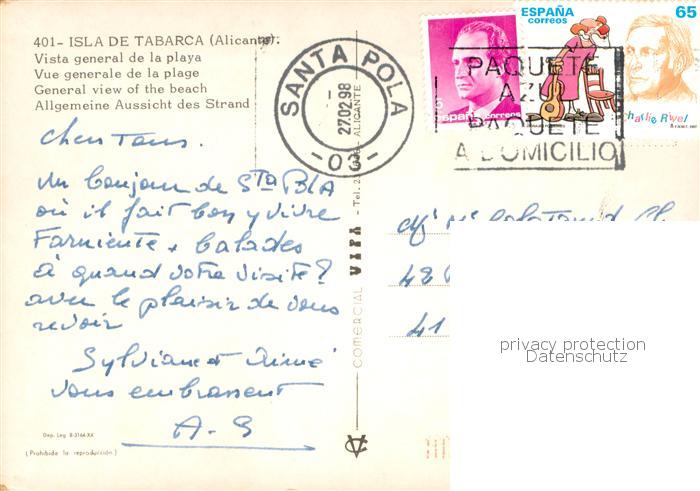 401- ISLA DE TABARCA (Alicante).
Vista general de la playa
Vue generale de la plage
General view of the beach
Allgemeine Aussicht des Strand
SANTA POLA
27.02.98
ALICANTE
-03-
España correos
ESPAÑA
correos
65
Charlie Rivel
PAQUETE
AZUL
PAQUETE
A DOMICILIO
Chers Tous.
Un bonjour de Sta POLA
où il fait bon y vivre
Farniente + balades
à quand votre visite?
avec le plaisir de vous
revoir
Sylviane et Aimé
vous embrassent
A-S
COMERCIAL VIPA - Tel. 2
48
41
privacy protection
Datenschutz
Dep. Leg B-3164-XX
(Prohibida la reproducción)